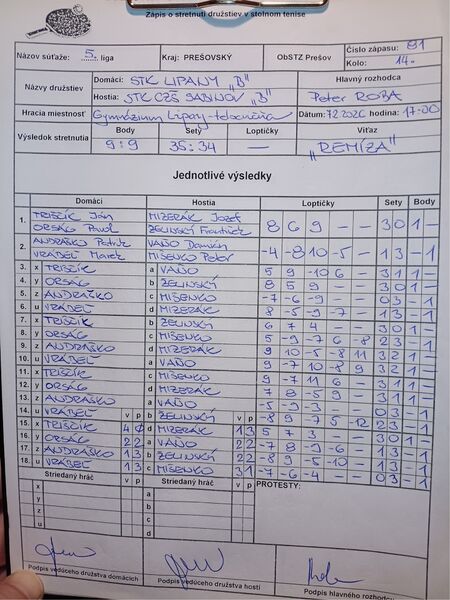 Zápis o stretnutí družstiev v stolnom tenise
Názov súťaže: 5. liga Kraj: PREŠOVSKÝ ObSTZ Prešov Číslo zápasu: 81
Kolo: 14.
Názvy družstiev Domáci: STK LIPANY "B" Hlavný rozhodca
Hostia: STK CZŠ SABINOV "B" Peter ROBA
Hracia miestnosť Gymnázium Lipany-telocvičňa Dátum: hodina: 17:00
Výsledok stretnutia Body Sety Loptičky Víťaz
9:9 35:34 "REMÍZA"
Jednotlivé výsledky
Domáci Hostia Loptičky Sety Body
1. TRIŠČÍK Ján MIZERÁK Jozef
ORSÁG Pavol ŽELINSKÝ František 8 6 9 - - 3 0 1 -
2. ANDRAŠKO Patrik VAŇO Damián
VRÁBEĽ Marek MIŠENKO Peter -4 -8 10 -5 - 1 3 - 1
3. x TRIŠČÍK a VAŇO 5 9 -10 6 - 3 1 1 -
4. y ORSÁG b ŽELINSKÝ 8 5 9 - - 3 0 1 -
5. z ANDRAŠKO c MIŠENKO -7 -6 -9 - - 0 3 - 1
6. u VRÁBEĽ d MIZERÁK 8 -5 -9 -7 - 1 3 - 1
7. x TRIŠČÍK b ŽELINSKÝ 6 7 4 - - 3 0 1 -
8. y ORSÁG c MIŠENKO 5 -9 -7 6 -8 2 3 - 1
9. z ANDRAŠKO d MIZERÁK 9 10 -5 -8 11 3 2 1 -
10. u VRÁBEĽ a VAŇO 9 -7 10 -8 9 3 2 1 -
11. x TRIŠČÍK c MIŠENKO 9 -7 11 6 - 3 1 1 -
12. y ORSÁG d MIZERÁK 7 8 -5 9 - 3 1 1 -
13. z ANDRAŠKO a VAŇO -5 -9 -3 - - 0 3 - 1
14. u VRÁBEĽ v p b ŽELINSKÝ v p -8 9 -7 5 -12 2 3 - 1
15. x TRIŠČÍK 4 0 d MIZERÁK 1 3 5 7 3 - - 3 0 1 -
16. y ORSÁG 2 2 a VAŇO 2 2 -7 8 -9 -6 - 1 3 - 1
17. z ANDRAŠKO 1 3 b ŽELINSKÝ 2 2 -8 9 -5 -10 - 1 3 - 1
18. u VRÁBEĽ 1 3 c MIŠENKO 3 1 -7 -6 -4 - - 0 3 - 1
Striedaný hráč v p Striedaný hráč v p PROTESTY:
x a
y b
z c
u d
Podpis vedúceho družstva domácich Podpis vedúceho družstva hostí Podpis hlavného rozhodcu